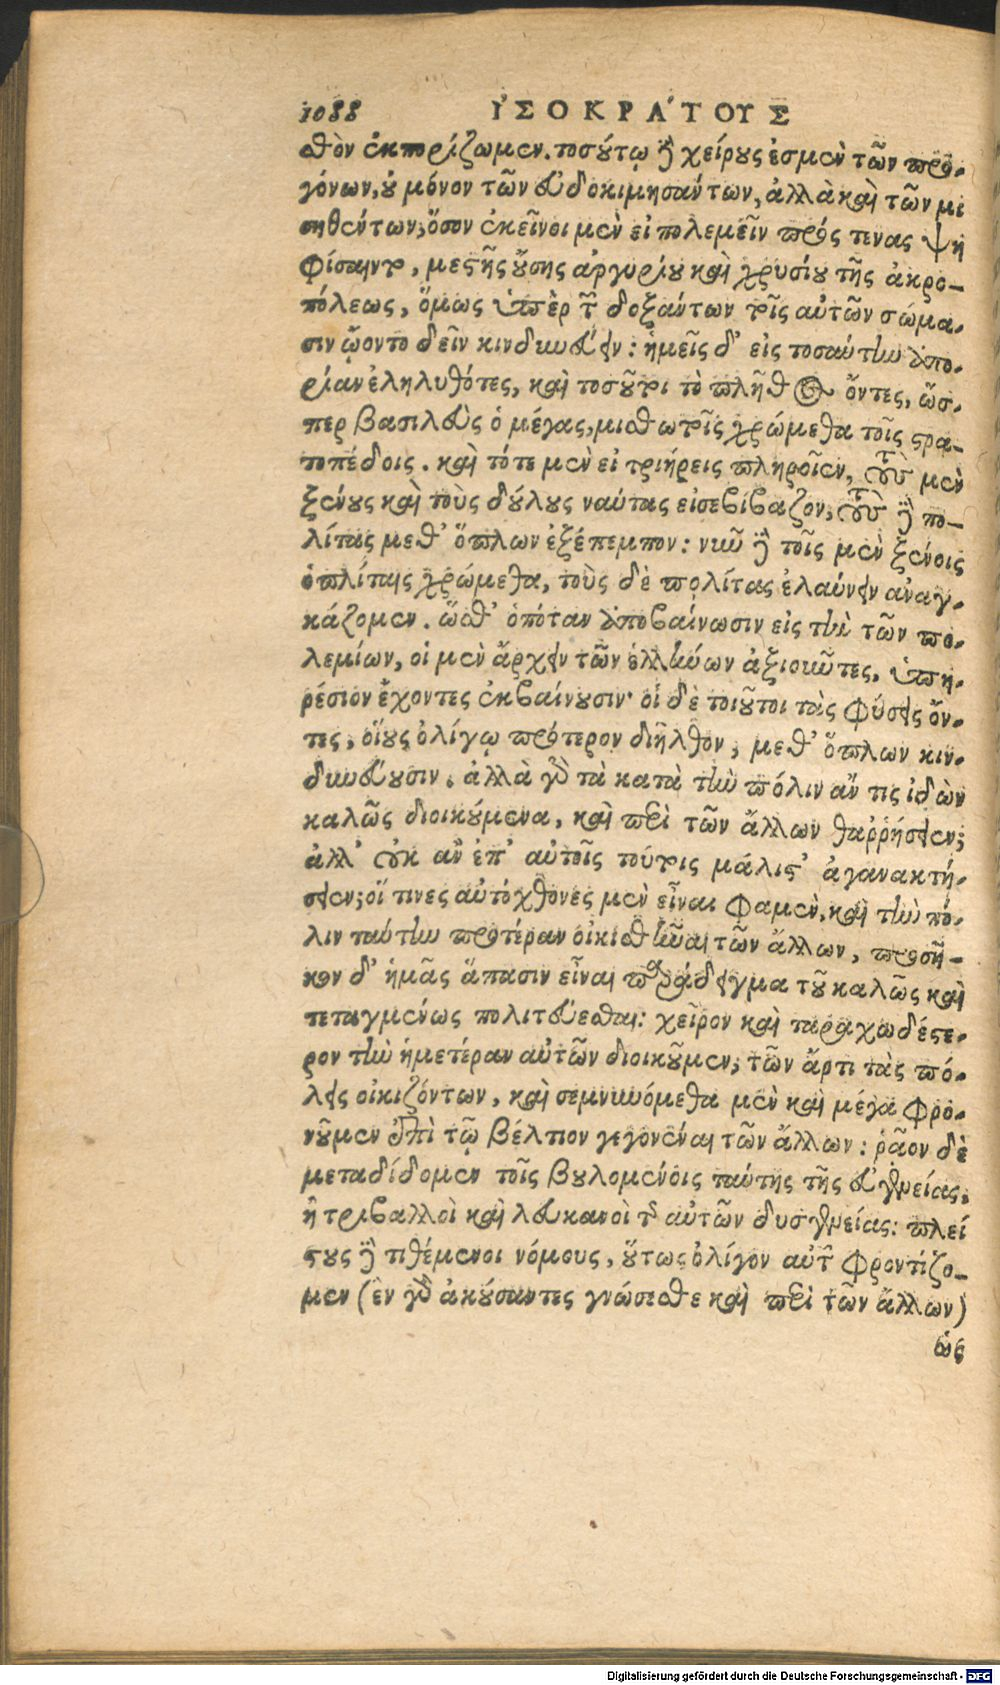 1088 ἸΣΟΚΡΆΤΟΥΣ
θὸν ἐκπορίζωμεν. τοσούτῳ δὲ χείρους ἐσμὲν τῶν προ-
γόνων, οὐ μόνον τῶν εὐδοκιμησάντων, ἀλλὰ καὶ τῶν μι
σηθέντων, ὅσον ἐκεῖνοι μὲν εἰ πολεμεῖν πρός τινας ψη
φίσαιντο, μεστῆς οὔσης ἀργυρίου καὶ χρυσίου τῆς ἀκρο-
πόλεως, ὅμως ὑπὲρ τῶν δοξάντων τοῖς αὑτῶν σώμα-
σιν ᾤοντο δεῖν κινδυνεύειν: ἡμεῖς δ' εἰς τοσαύτην ἀπο-
ρίαν ἐληλυθότες, καὶ τοσοῦτοι τὸ πλῆθος ὄντες, ὥσ-
περ βασιλεὺς ὁ μέγας, μισθωτοῖς χρώμεθα τοῖς στρα-
τοπέδοις. καὶ τότε μὲν εἰ τριήρεις πληροῖεν, τοὺς μὲν
ξένους καὶ τοὺς δούλους ναύτας εἰσεβίβαζον, τοὺς δὲ πο-
λίτας μεθ' ὅπλων ἐξέπεμπον: νῦν δὲ τοῖς μὲν ξένοις
ὁπλίταις χρώμεθα, τοὺς δὲ πολίτας ἐλαύνειν ἀναγ-
κάζομεν. ὥσθ' ὁπόταν ἀποβαίνωσιν εἰς τὴν τῶν πο-
λεμίων, οἱ μὲν ἄρχειν τῶν ἑλλήνων ἀξιοῦντες, ὑπη-
ρέσιον ἔχοντες ἐκβαίνουσιν· οἱ δὲ τοιοῦτοι τὰς φύσεις ὄν-
τες, οἵους ὀλίγῳ πρότερον διῆλθον, μεθ' ὅπλων κιν-
δυνεύουσιν. ἀλλὰ γὰρ τὰ κατὰ τὴν πόλιν ἄν τις ἰδὼν
καλῶς διοικούμενα, καὶ περὶ τῶν ἄλλων θαῤῥήσειεν;
ἀλλ' οὐκ ἂν ἐπ' αὐτοῖς τούτοις μάλιστ' ἀγανακτή-
σειεν; οἵ τινες αὐτόχθονες μὲν εἶναι φαμὲν, καὶ τὴν πό-
λιν ταύτην προτέραν οἰκισθῆναι τῶν ἄλλων, προσῆ-
κον δ' ἡμᾶς ἅπασιν εἶναι παράδειγμα τοῦ καλῶς καὶ
τεταγμένως πολιτεύεσθαι: χεῖρον καὶ ταραχωδέστε-
ρον τὴν ἡμετέραν αὐτῶν διοικοῦμεν, τῶν ἄρτι τὰς πό-
λεις οἰκιζόντων, καὶ σεμνυνόμεθα μὲν καὶ μέγα φρο-
νοῦμεν ἐπὶ τῷ βέλτιον γεγονέναι τῶν ἄλλων: ῥᾷον δὲ
μεταδίδομεν τοῖς βουλομένοις ταύτης τῆς εὐγενείας,
ἢ τριβαλλοὶ καὶ λευκανοὶ τῆς αὑτῶν δυσγενείας: πλεί
στους δὲ τιθέμενοι νόμους, οὕτως ὀλίγον αὐτῶν φροντίζο-
μεν (ἓν γὰρ ἀκούσαντες γνώσεσθε καὶ περὶ τῶν ἄλλων)
ὡς
Digitalisierung gefördert durch die Deutsche Forschungsgemeinschaft - DFG